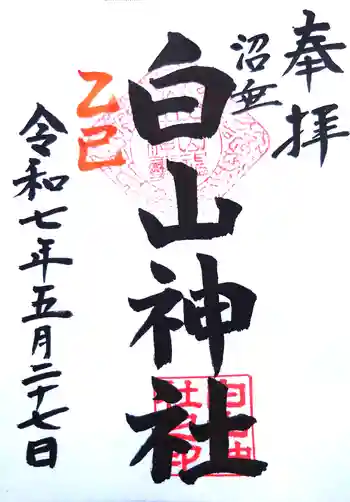 奉拝
沼垂
白山神社
乙巳
令和七年五月二十七日